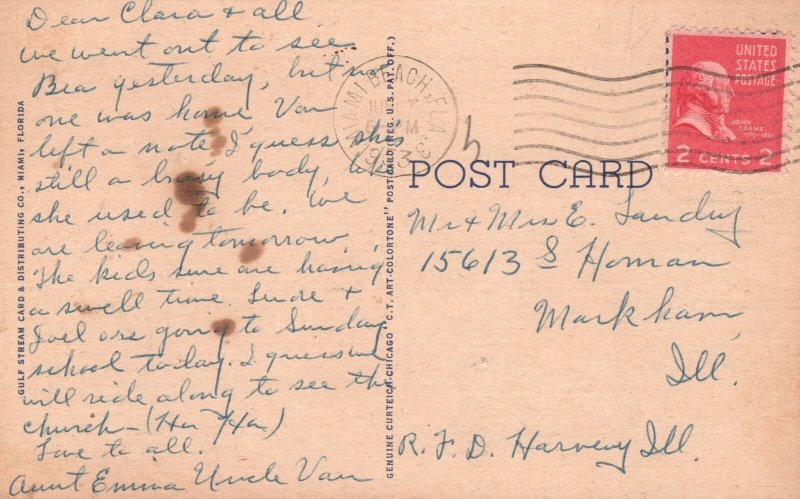 Dear Clara & all
we went out to see
Bea yesterday, but no
one was home Van
left a note I guess shes
still a busy body, like
she used to be. We
are leaving tomorrow,
The kids sure are having
a swell time. &
Joel are going to Sunday
school today. I guess we
will ride along to see the
church — (Ha Ha)
Love to all.
Aunt Emma Uncle Van
GULF STREAM CARD & DISTRIBUTING CO., MIAMI, FLORIDA
GENUINE CURTEICH-CHICAGO "C.T. ART-COLORTONE" POST CARD (REG. U.S. PAT. OFF.)
MIAMI BEACH, FLA.
UNITED
STATES
POSTAGE
JOHN
ADAMS
2 CENTS 2
POST CARD
Mr & Mrs E. Landry
15613 S Homan
Markham,
Ill.
R. F. D. Harvey Ill.